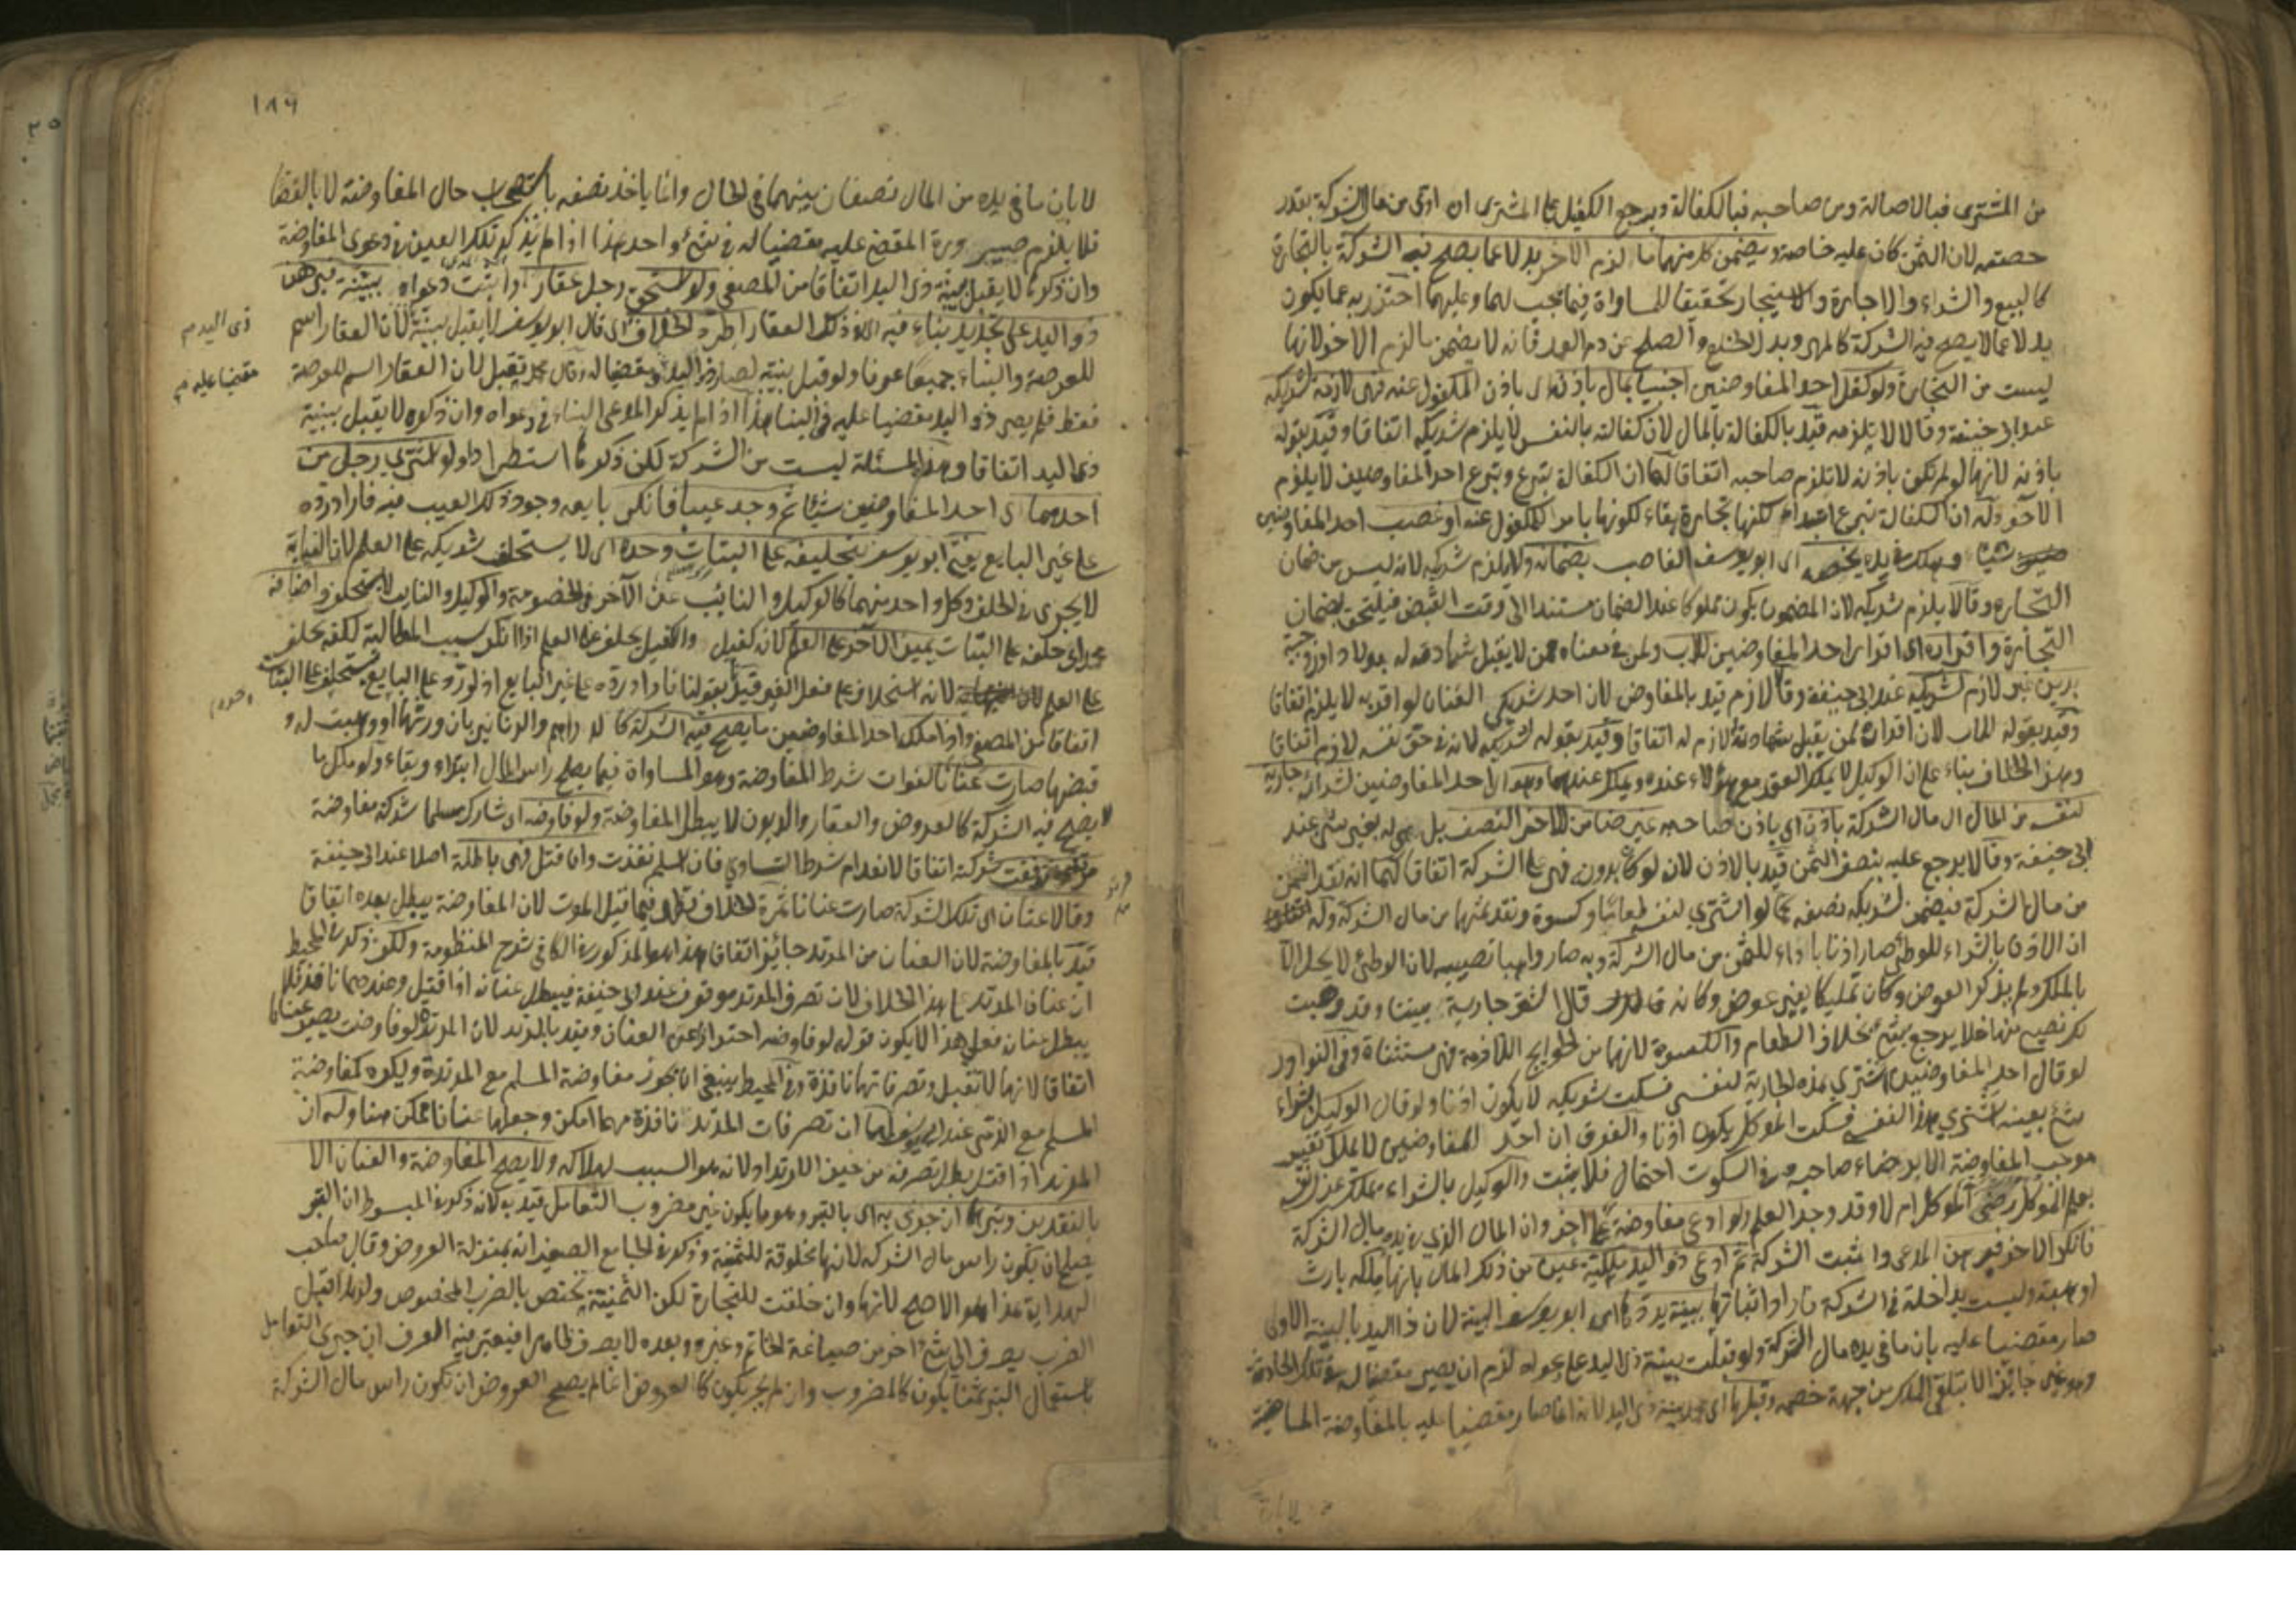 من المشترى فبالاصالة ومن صاحبه فبالكفالة ويرجع الكفيل على المشترى ان ادى من مال الشركة بقدر
حصته لان الثمن كان عليه خاصة ويضمن كل منهما ما لزم الاخر بدلا عما يصح فيه الشركة بالتجارة
كالبيع والشراء والاجارة والاستيجار تحقيقا للمساواة فيما يجب لهما وعليهما احترز به عما يكون
بدلا عما لا يصح فيه الشركة كالمهر وبدل الخلع والصلح عن دم العمد فانه لا يضمن ما لزم الاخر لانها
ليست من التجارة ولو كفل احد المفاوضين اجنبيا بمال باذنه اى باذن المكفول عنه فهى لازمة شريكه
عند ابى حنيفة وقالا لا يلزمه قيد بالكفالة بالمال لان كفالته بالنفس لا يلزم شريكه اتفاقا وقيد بقوله
باذنه لانها لو لم تكن باذنه لا تلزم صاحبه اتفاقا لهما ان الكفالة تبرع وتبرع احد المفاوضين لا يلزم
الآخر وله ان الكفالة تبرع ابتداء لكنها تجارة بقاء لكونها بامر المكفول عنه او غصب احد المفاوضين
شيئا وهلك فى يده يخصه اى ابو يوسف الغاصب بضمانه ولا يلزم شريكه لانه ليس من ضمان
التجارة وقالا يلزم شريكه لان المضمون يكون مملوكا عند الضمان مستندا الى وقت القبض فيلتحق بضمان
التجارة واقراره اى اقرار احد المفاوضين للاب ولمن فى معناه ممن لا يقبل شهادته له بولاد او زوجية
بدين غير لازم لشريكه عند ابى حنيفة وقالا لازم قيد بالمفاوض لان احد شريكى العنان لو اقر به لا يلزم اتفاقا
وقيد بقوله للاب لان اقراره لمن يقبل شهادته لازم له اتفاقا وقيد بقوله لشريكه لانه فى حق نفسه لازم اتفاقا
وهذا الخلاف بناء على ان الوكيل لا يملك العقد مع هؤلاء عنده ويملك عندهما وشراء احد المفاوضين لشراء جارية
لنفسه من المال اى مال الشركة باذن اى باذن صاحبه غير ضامن للاخر النصف بل هى له بغير شئ عند
ابى حنيفة وقالا يرجع عليه بنصف الثمن قيد بالاذن لانه لو كان بدونه فهى على الشركة اتفاقا لهما انه نقد الثمن
من مال الشركة فيضمن لشريكه نصفه كما لو اشترى لنفسه طعاما وكسوة ونقد ثمنها من مال الشركة وله
ان الاذن بالشراء للوطئ صار اذنا باداء الثمن من مال الشركة وبه صار واهبا نصيبه لان الوطئ لا يحل الا
بالملك ولم يذكر العوض وكان تمليكا بغير عوض وكانه قال اشتر جارية بيننا وقد وهبت
لك نصيبى منها فلا يرجع بشئ بخلاف الطعام والكسوة لانها من الحوايج اللازمة فهى مستثناة وفى النوادر
لو قال احد المفاوضين اشترى هذه الجارية لنفسى فسكت شريكه لا يكون اذنا ولو قال الوكيل بشراء
شئ بعينه اشترى هذا لنفسى فسكت الموكل يكون اذنا والفرق ان احد المفاوضين لا يملك تغيير
موجب المفاوضة الا برضاء صاحبه وفى السكوت احتمال فلا يثبت والوكيل بالشراء يملك عزل نفسه
بعلم الموكل رضى الموكل ام لا وقد وجد العلم ولو ادعى مفاوضة على اخر وان المال الذى فى يده مال الشركة
فانكر الاخر فبرهن المدعى واثبت الشركة ثم ادعى ذو اليد ملكية عين من ذلك المال بانها ملكه بارث
او هبة وليست بداخلة فى الشركة واراد اثباتها ببينة يردها اى ابو يوسف البينة لان ذا اليد بالبينة الاولى
صار مقضيا عليه بان ما فى يده مال الشركة ولو قبلت بينة ذى اليد على دعواه لزم ان يصير مقضيا له فى تلك الحادثة
وهو غير جائز الا بتلقى الملك من جهة خصمه وقبلها اى محمد بينة ذى اليد لانه انما صار مقضيا عليه بالمفاوضة الماضية
لا بان
١٨٦
لا بان ما فى يده من المال نصفان بينهما فى الحال وانما ياخذ نصفه باستصحاب حال المفاوضة لا بالقضا
فلا يلزم صيرورة المقضى عليه مقضيا له فى شئ واحد هذا اذا لم يذكر تلك العين فى دعوى المفاوضة
وان ذكره لا يقبل بينة ذى اليد اتفاقا من المصفى ولو استحق رجل عقارا واثبت دعواه ببينة فبرهن
ذو اليد على تجديد بناء فيه اى فى ذلك العقار اطرد الخلاف اى قال ابو يوسف لا يقبل بينته لان العقار اسم
للعرصة والبناء جميعا عرفا ولو قبل بينته لصار ذو اليد مقضيا له وقال محمد تقبل لان العقار اسم للعرصة
فقط فلم يصر ذو اليد مقضيا عليه فى البناء هذا اذا لم يذكر المدعى البناء فى دعواه وان ذكره لا يقبل ببينة
ذى اليد اتفاقا وهذه المسئلة ليست من الشركة لكن ذكرها استطرادا ولو اشترى رجل من
احدهما اى احد المفاوضين شيئا ثم وجد عيبا فانكر بايعه وجود ذلك العيب فيه فاراد رده
على غير البايع يفتى ابو يوسف بتحليفه على البتات وحده اى لا يستحلف شريكه على العلم لان النيابة
لا يجرى فى الحلف وكل واحد منهما كالوكيل والنائب عن الآخر فى الخصومة والوكيل والنايب لا يستحلف واضافه
محمد اى حلفه على البتات يمين الآخر على العلم لانه كفيل والكفيل يحلف على العلم اذا انكر سبب المطالبة لكنه يحلف
على العلم لانه استحلاف على فعل الغير قيد بقولنا فاراد رده على غير البايع اذ لو رد على البايع يستحلف على البتات
اتفاقا من المصفى واذا ملك احد المفاوضين ما يصح فيه الشركة كالدراهم والدنانير بان ورثها او وهبت له و
قبضها صارت عنانا لفوات شرط المفاوضة وهو المساواة فيما يصلح راس المال ابتداء وبقاء ولو ملك ما
لا يصح فيه الشركة كالعروض والعقار والديون لا يبطل المفاوضة ولو فاوضه اى شارك مسلما شركة مفاوضة
مرتد وقفت شركته اتفاقا لانعدام شرط التساوى فان اسلم نفذت وان قتل فهى باطلة اصلا عند ابى حنيفة
وقالا عنان اى تلك الشركة صارت عنانا ثمرة الخلاف تظهر فيما قبل الموت لان المفاوضة يبطل بعده اتفاقا
قيد بالمفاوضة لان العنان من المرتد جائز اتفاقا هذا هو المذكور فى الكافى شرح المنظومة ولكن ذكر فى المحيط
ان عنان المرتد على هذا الخلاف لان تصرف المرتد موقوف عند ابى حنيفة فيبطل عنانه اذا قتل وعندهما نافذ فلا
يبطل عنانه فعلى هذا لا يكون قوله لو فاوضه احترازا عن العنان وقيد بالمرتد لان المرتدة لو فاوضت يصير عنانا
اتفاقا لانها لا تقتل وتصرفاتها نافذة وفى المحيط ينبغى ان يجوز مفاوضة المسلم مع المرتدة ويكره كمفاوضة
المسلم مع الذمى عند ابى يوسف لهما ان تصرفات المرتد نافذة مهما امكن وجعلها عنانا ممكن هنا وله ان
المرتد اذا قتل بطل تصرفه من حين الارتداد لانه هو السبب لهلاكه ولا يصح المفاوضة والعنان الا
بالنقدين وتبر ان جرى به اى بالتبر وهو ما يكون غير مضروب التعامل قيد به لانه ذكر فى المبسوط ان التبر
يصلح ان يكون راس مال الشركة لانها مخلوقة للثمنية وذكر فى الجامع الصغير انه بمنزلة العروض وقال صاحب
الهداية هذا هو الاصح لانها وان خلقت للتجارة لكن الثمنية يختص بالضرب المخصوص ولهذا قبل
الضرب يصرف الى شئ اخر من صياغة الخاتم وغيره وبعده لا يصرف ظاهرا فيعتبر فيه العرف ان جرى التعامل
باستعمال التبر ثمنا يكون كالمضروب وان لم يجر يكون كالعروض انما لم يصح العروض ان تكون راس مال الشركة